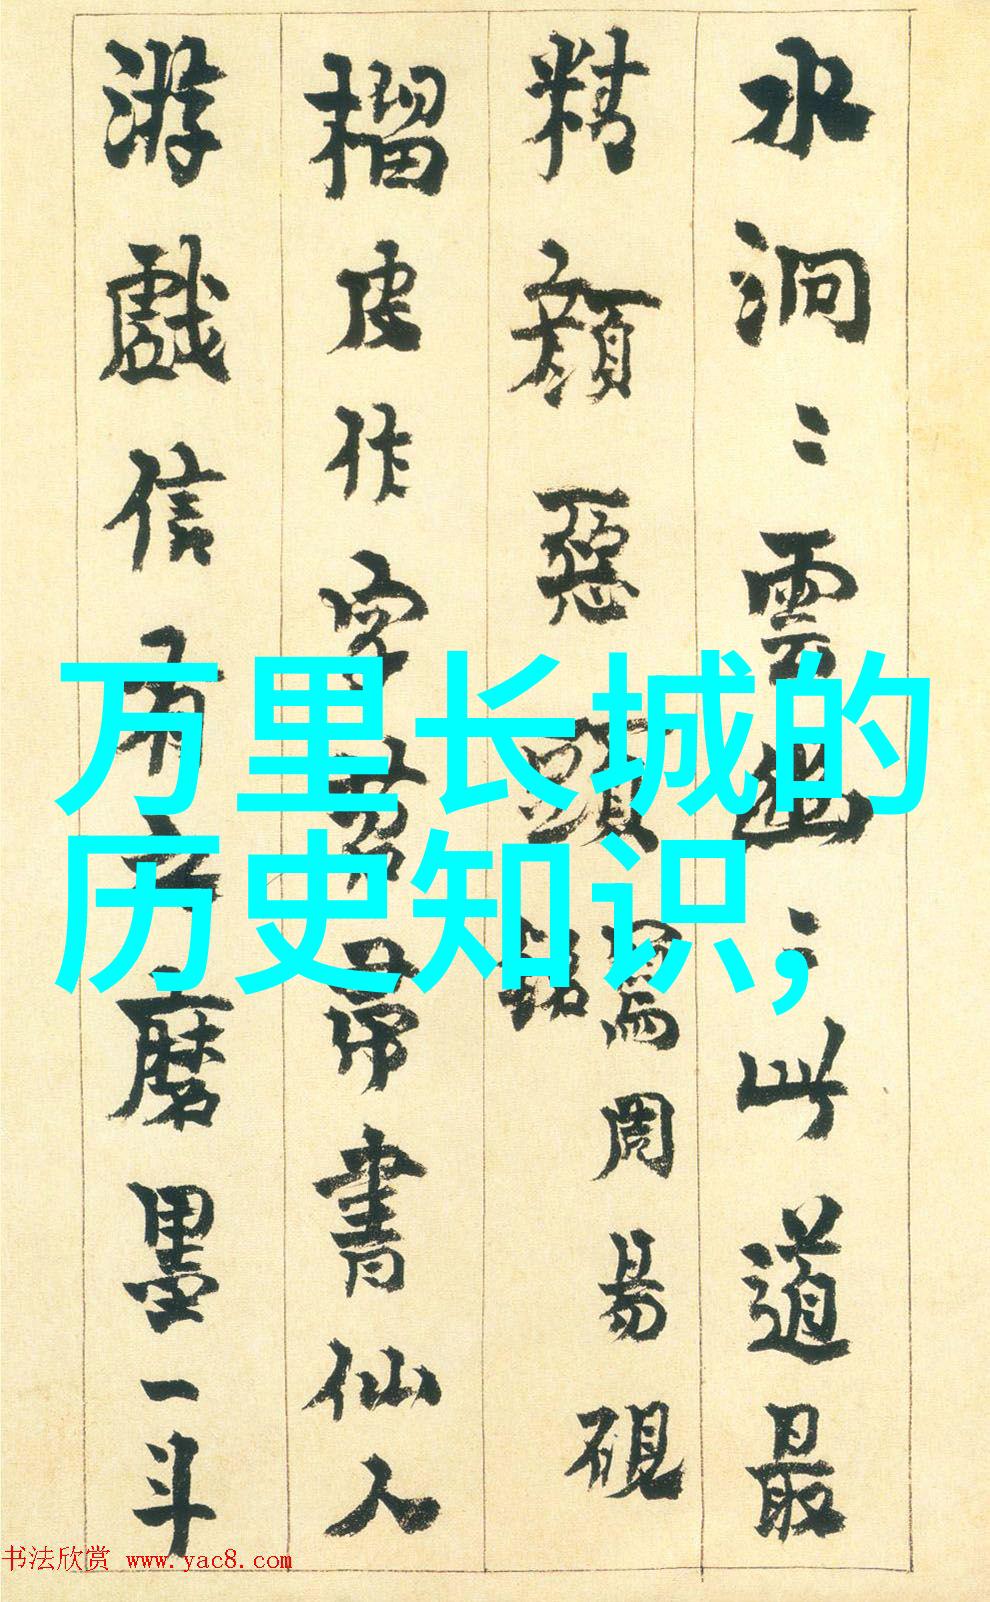 水洞〻雲幽〻此道最
精顏惡頭寫周易硯
銘
榴皮作字苕帚書仙人
游戲信有之磨墨一斗
万里长城的
历史知识，
书法欣赏 www.yac8.com